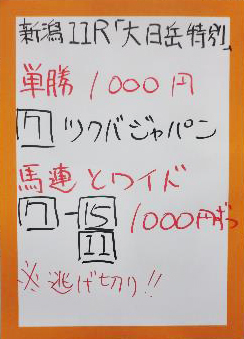 新潟11R「大日岳特別」
単勝1000円
7 ツクバジャパン
馬連とワイド
7-15 1000円ずつ
11
※逃げ切り!!